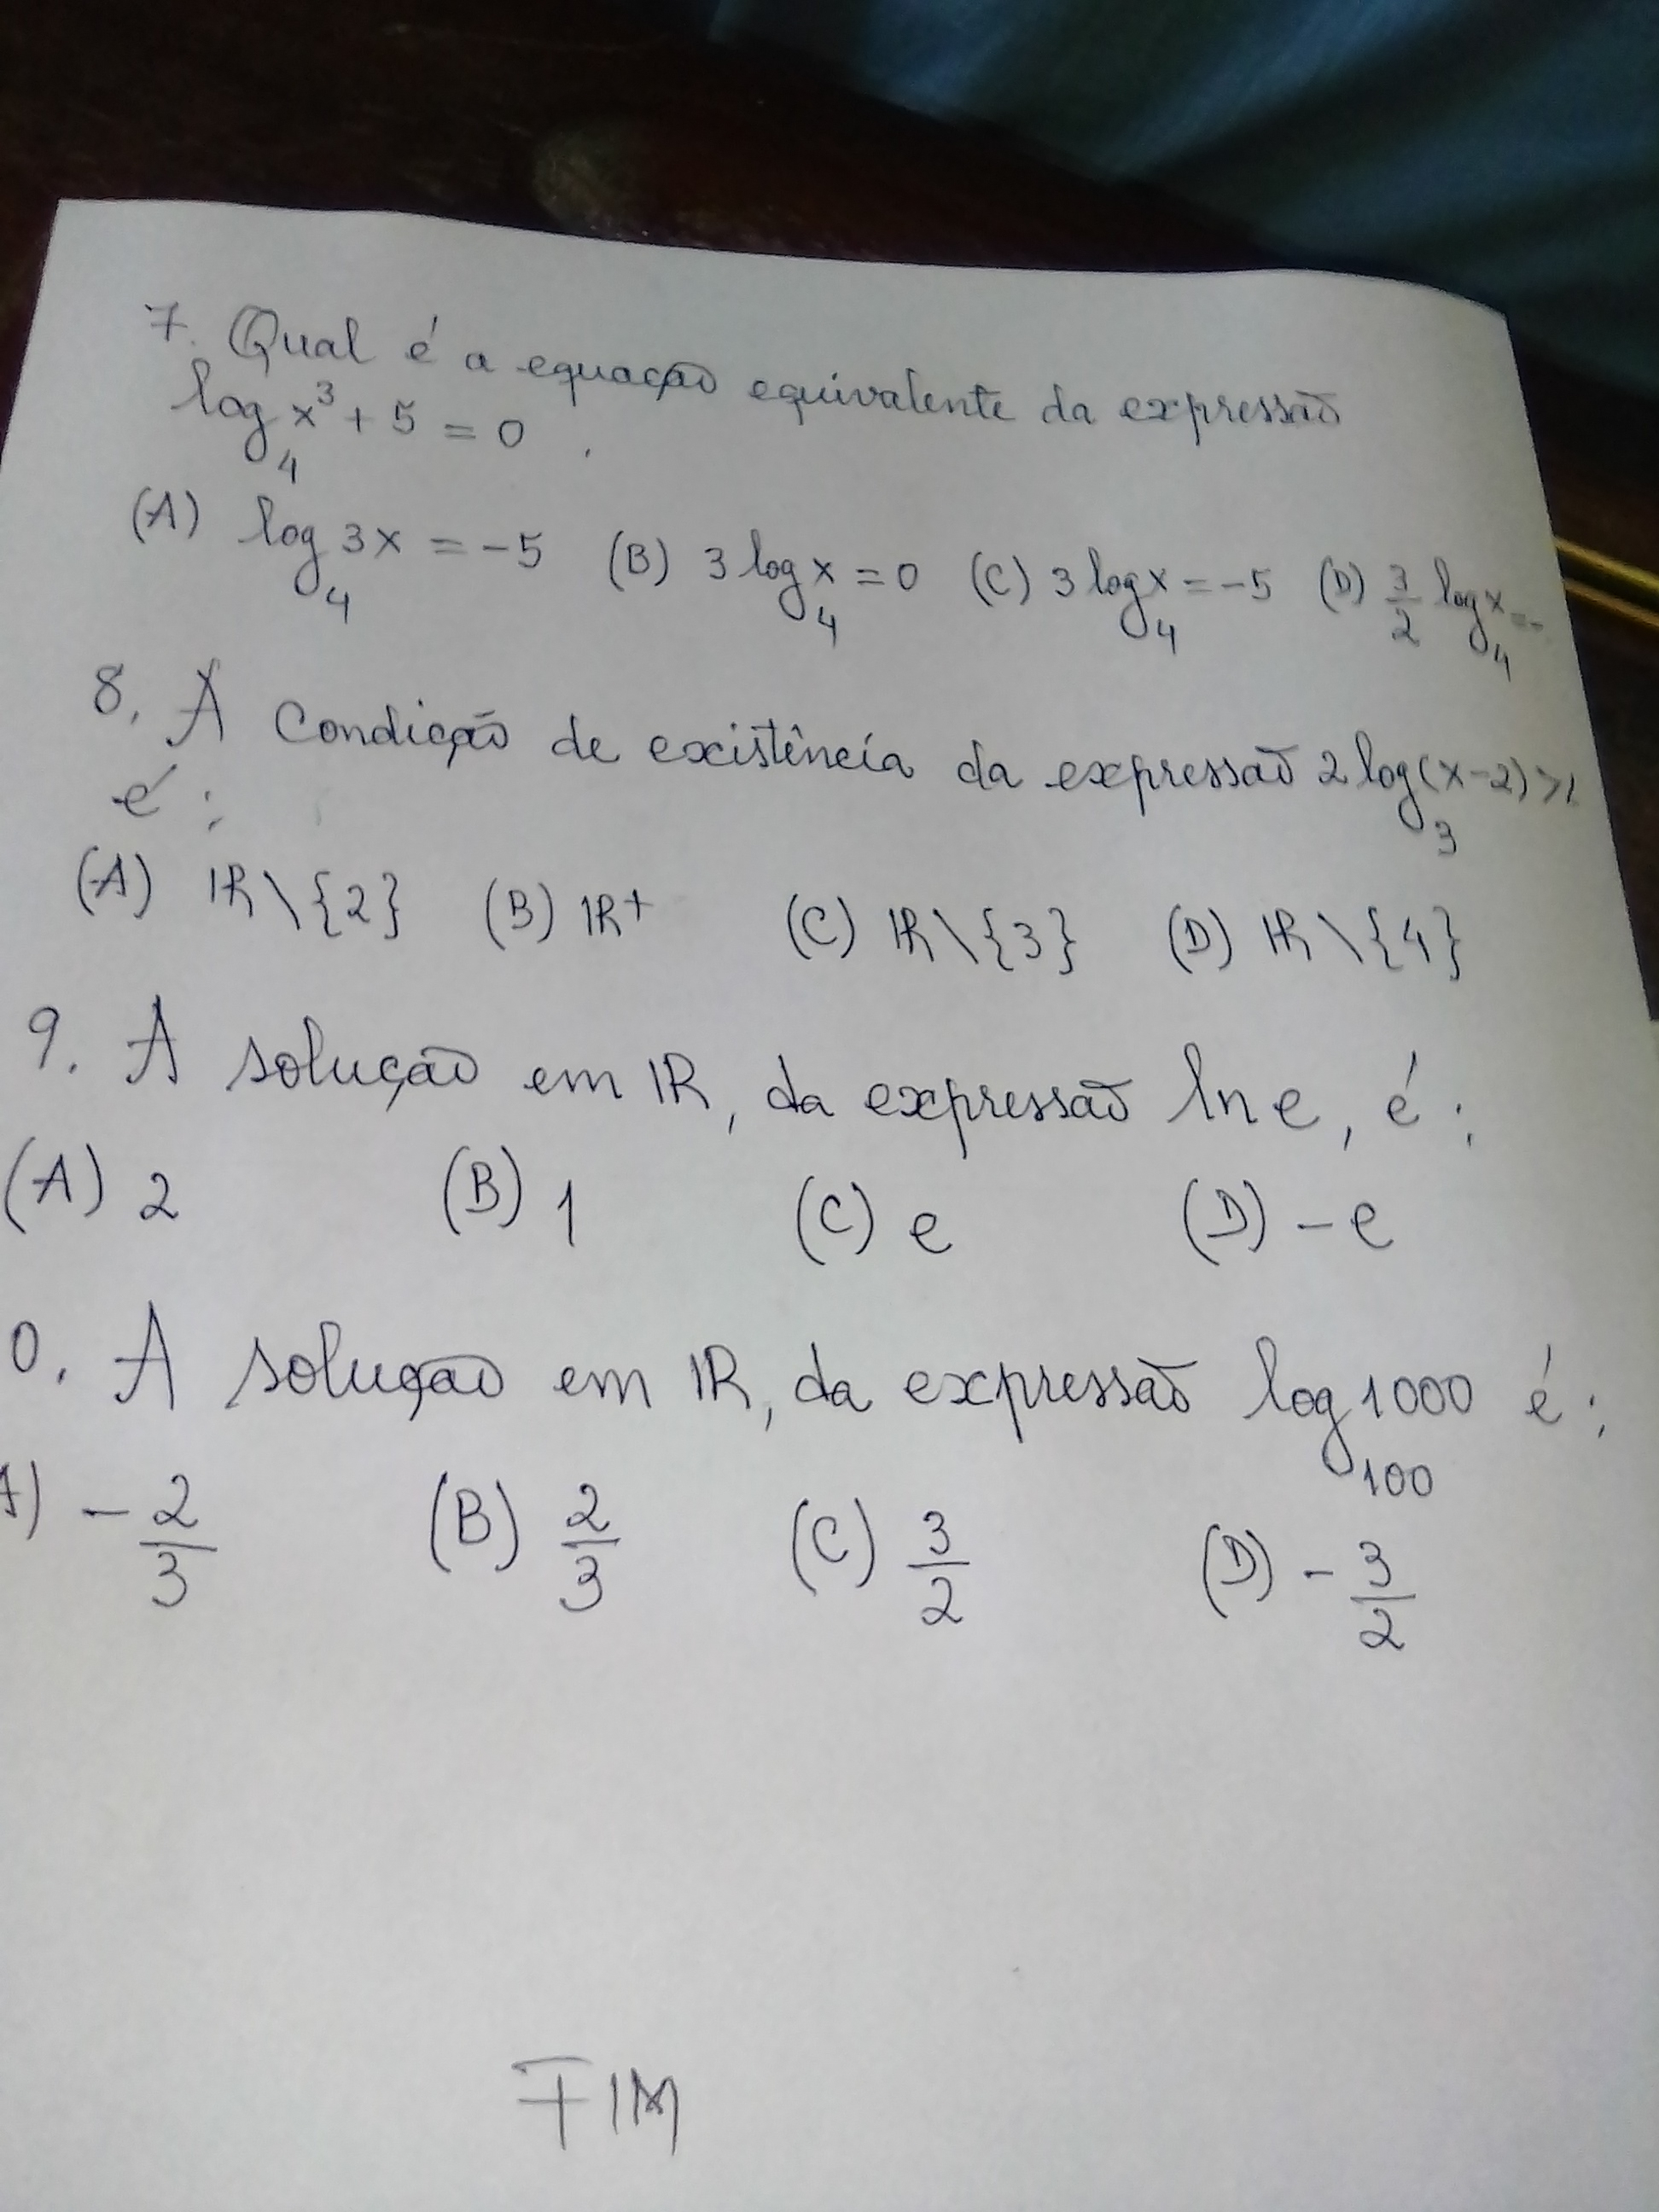 7. Qual é a equação equivalente da expressão
log₄ x³ + 5 = 0 .
(A) log₄ 3x = -5 (B) 3 log₄ x = 0 (C) 3 log₄ x = -5 (D) 3/2 log₄ x = -
8. A Condição de existência da expressão 2 log₃ (x-2) > 1
é :
(A) IR \ {2} (B) IR+ (C) IR \ {3} (D) IR \ {4}
9. A solução em IR, da expressão ln e, é :
(A) 2 (B) 1 (C) e (D) - e
0. A solução em IR, da expressão log₁₀₀ 1000 é :
) - 2/3 (B) 2/3 (C) 3/2 (D) - 3/2
FIM